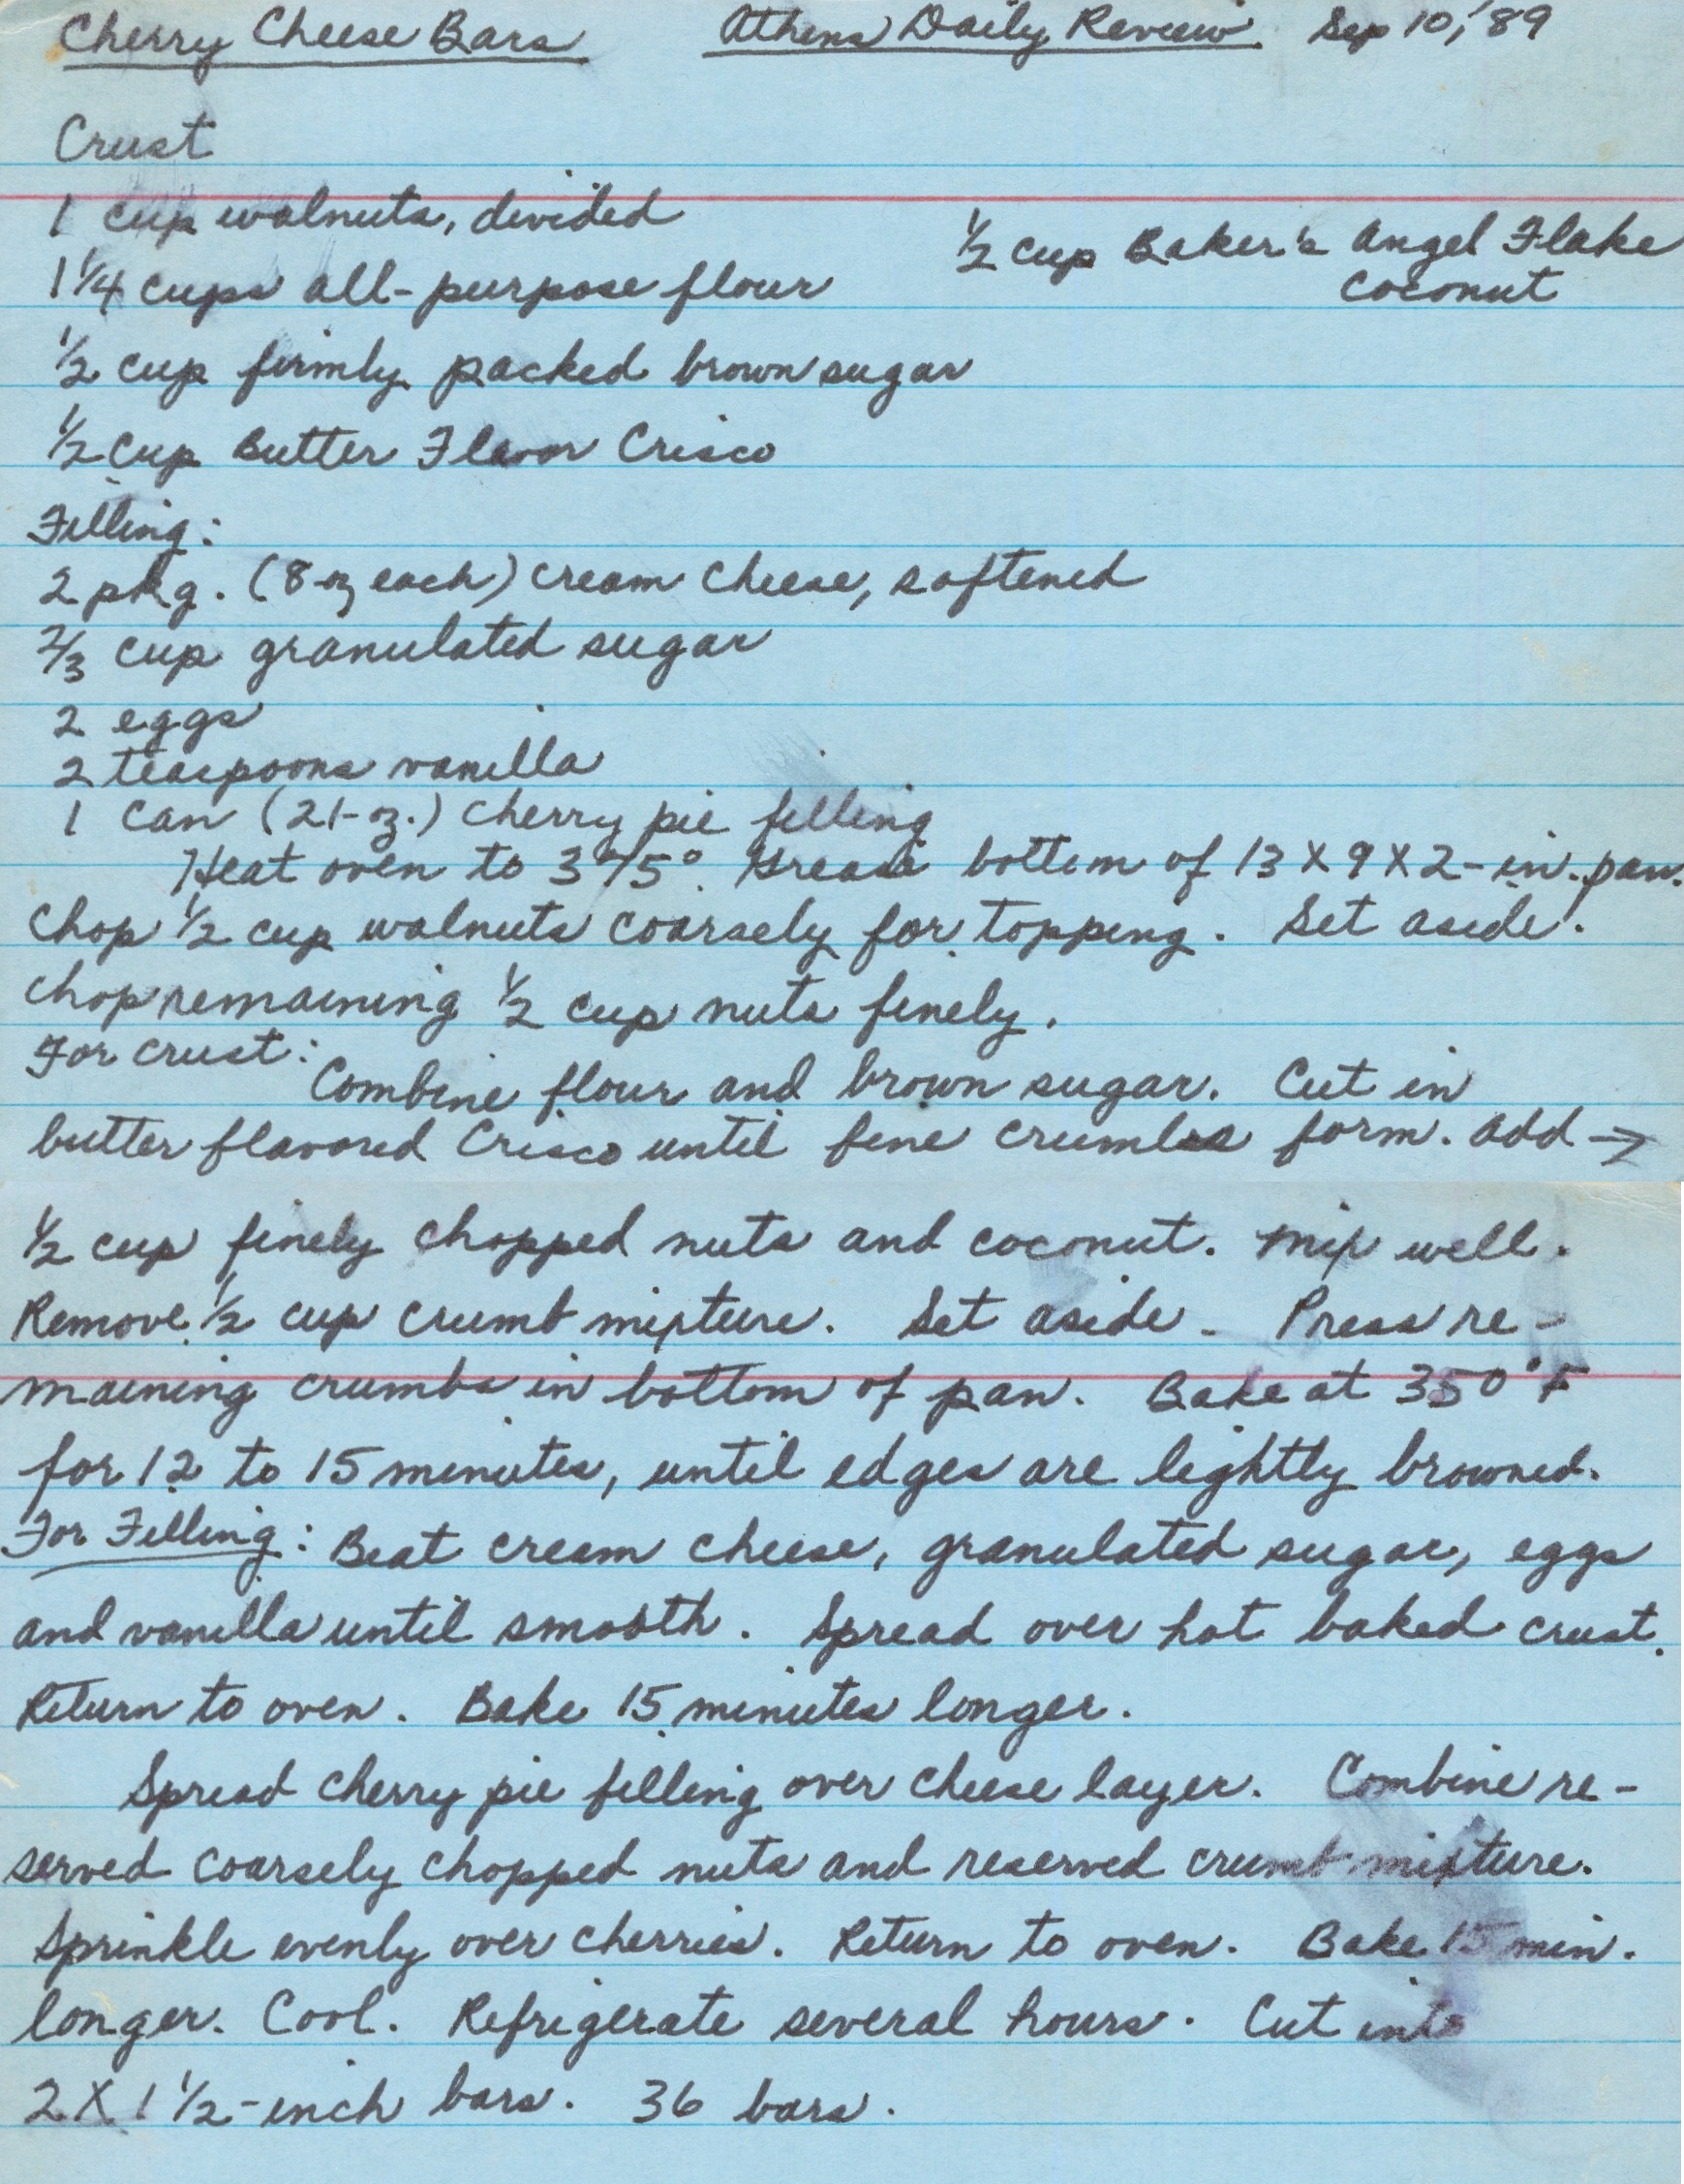 Cherry Cheese Bars Athens Daily Review Sep 10, '89
Crust
1 cup walnuts, divided
1/2 cup Baker's Angel Flake
Coconut
1 1/4 cups all-purpose flour
1/2 cup firmly packed brown sugar
1/2 cup Butter Flavor Crisco
Filling:
2 pkg. (8-oz each) cream cheese, softened
2/3 cup granulated sugar
2 eggs
2 teaspoons vanilla
1 can (21-oz.) cherry pie filling
Heat oven to 375°. Grease bottom of 13 X 9 X 2-in. pan.
Chop 1/2 cup walnuts coarsely for topping. Set aside.
Chop remaining 1/2 cup nuts finely.
For crust:
Combine flour and brown sugar. Cut in
butter flavored Crisco until fine crumbs form. Add →
1/2 cup finely chopped nuts and coconut. Mix well.
Remove 1/2 cup crumb mixture. Set aside. Press re-
maining crumbs in bottom of pan. Bake at 350°F
for 12 to 15 minutes, until edges are lightly browned.
For Filling: Beat cream cheese, granulated sugar, eggs
and vanilla until smooth. Spread over hot baked crust.
Return to oven. Bake 15 minutes longer.
Spread cherry pie filling over cheese layer. Combine re-
served coarsely chopped nuts and reserved crumb mixture.
Sprinkle evenly over cherries. Return to oven. Bake 15 min.
longer. Cool. Refrigerate several hours. Cut into
2 X 1 1/2-inch bars. 36 bars.